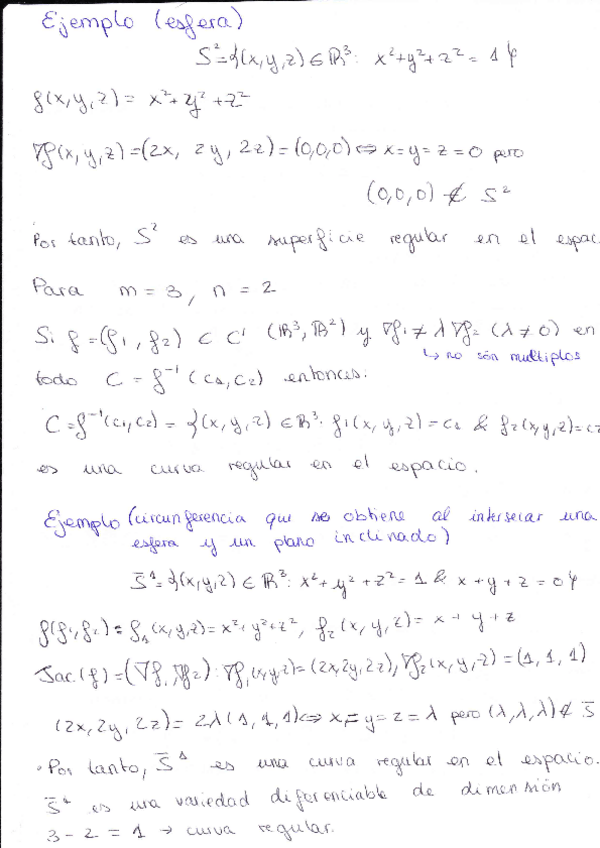 Ejemplo (esfera)
S² = {(x,y,z) ∈ ℝ³: x²+y²+z² = 1}
f(x,y,z) = x²+y²+z²
∇f(x,y,z) = (2x, 2y, 2z) = (0,0,0) ⇔ x=y=z=0 pero
(0,0,0) ∉ S²
Por tanto, S² es una superficie regular en el espac
Para m = 3, n = 2
Si f = (f1, f2) ⊂ C¹ (ℝ³, ℝ²) y ∇f1 ≠ λ∇f2 (λ≠0) en
↳ no són multiplos
todo C = f⁻¹(c1,c2) entonces:
C = f⁻¹(c1,c2) = {(x,y,z) ∈ ℝ³: f1(x,y,z) = c1 & f2(x,y,z) = c2
es una curva regular en el espacio.
Ejemplo (circunferencia que se obtiene al intersecar una
esfera y un plano inclinado)
S̄¹ = {(x,y,z) ∈ ℝ³: x²+y²+z² = 1 & x+y+z = 0}
f(f1,f2) = f1(x,y,z) = x²+y²+z², f2(x,y,z) = x+y+z
Jac(f) = (∇f1, ∇f2): ∇f1(x,y,z) = (2x,2y,2z), ∇f2(x,y,z) = (1,1,1)
(2x,2y,2z) = 2λ(1,1,1) ⇔ x=y=z=λ pero (λ,λ,λ) ∉ S̄
· Por tanto, S̄¹ es una curva regular en el espacio.
S̄¹ es una variedad diferenciable de dimensión
3-2 = 1 → curva regular.